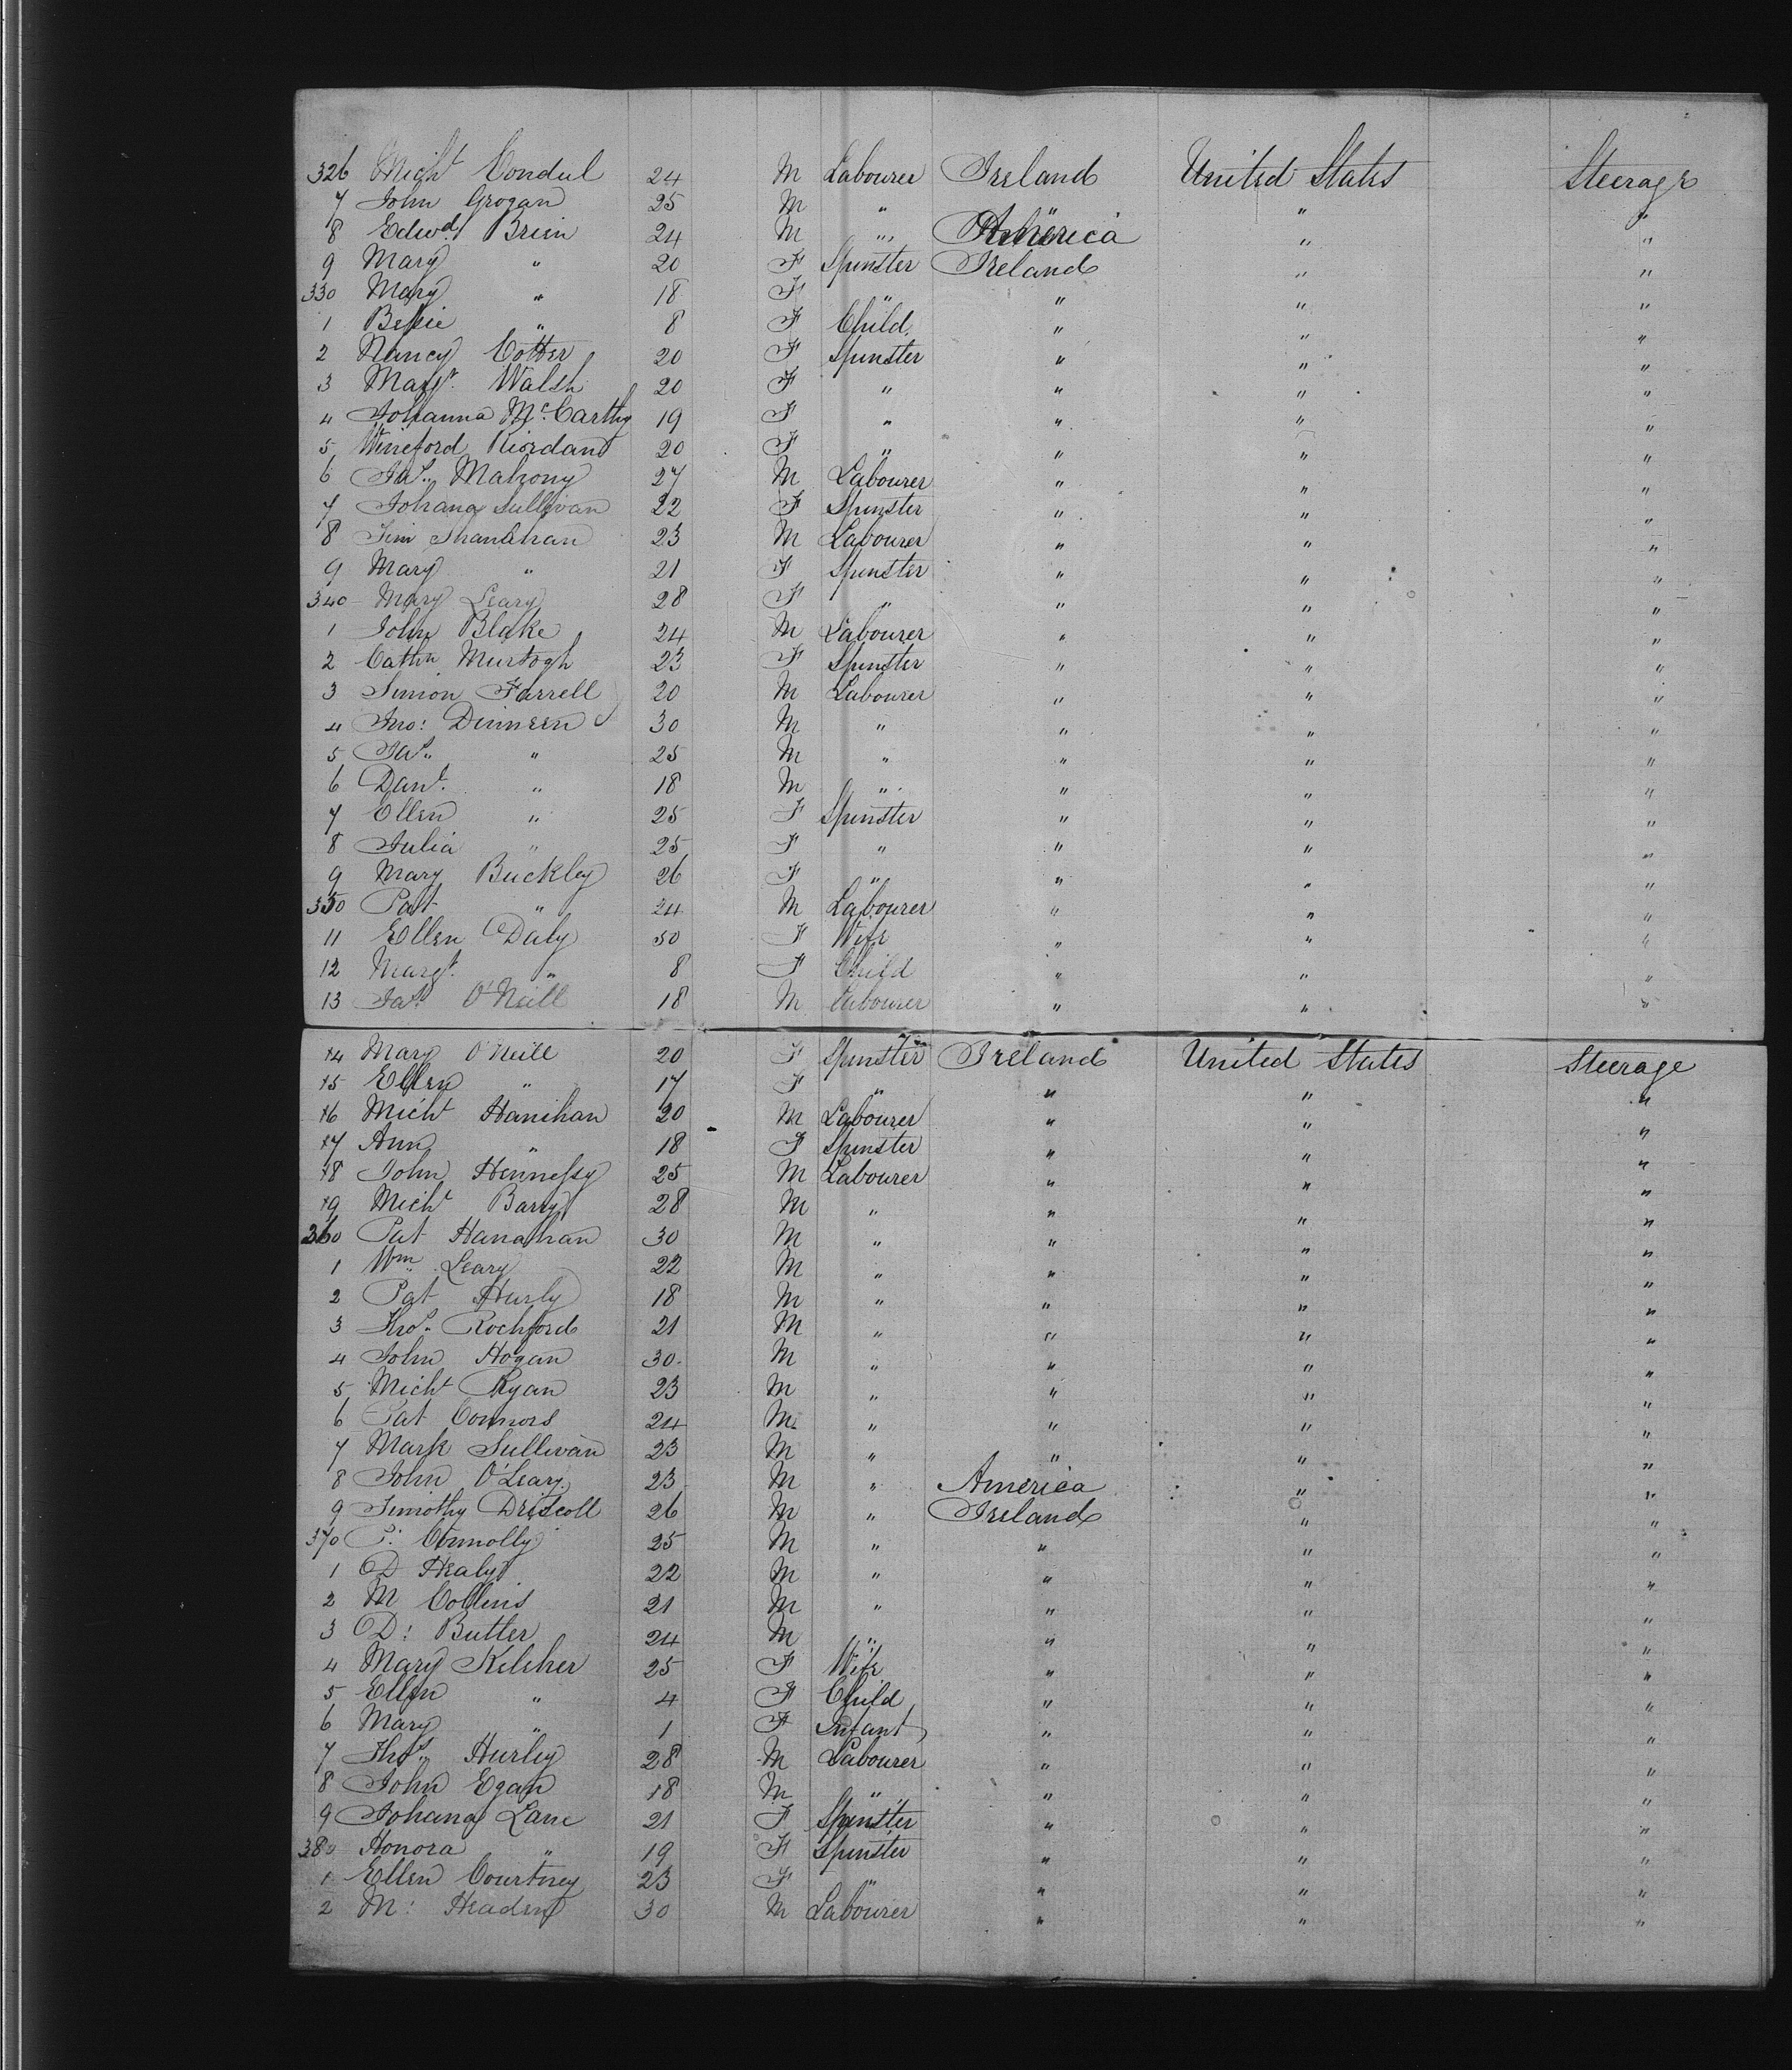 326 Michl Condul 24 M Labourer Ireland United States Steerage
7 John Grogan 25 M " " " "
8 Edwd Brien 24 M " America " "
9 Mary " 20 F Spinster Ireland " "
330 Mary " 18 F " " " "
1 Bessie " 8 F Child " " "
2 Nancy Cotter 20 F Spinster " " "
3 Margt. Walsh 20 F " " " "
4 Johanna McCarthy 19 F " " " "
5 Wineford Riordan 20 F " " " "
6 Jas. Mahony 27 M Labourer " " "
7 Johana Sullivan 22 F Spinster " " "
8 Tim Shanahan 23 M Labourer " " "
9 Mary " 21 F Spinster " " "
340 Mary Leary 28 F " " " "
1 John Blake 24 M Labourer " " "
2 Cathn Murtogh 23 F Spinster " " "
3 Simon Farrell 20 M Labourer " " "
4 Jno: Dinneen 30 M " " " "
5 Jas. " 25 M " " " "
6 Danl. " 18 M " " " "
7 Ellen " 25 F Spinster " " "
8 Julia " 25 F " " " "
9 Mary Buckley 26 F " " " "
350 Pat " 24 M Labourer " " "
11 Ellen Daly 50 F Wife " " "
12 Margt. " 8 F Child " " "
13 Jas. O'Neill 18 M Labourer " " "
14 Mary O'Neill 20 F Spinster Ireland United States Steerage
15 Ellen " 17 F " " " "
16 Michl Hanihan 20 M Labourer " " "
17 Ann " 18 F Spinster " " "
18 John Hennessy 25 M Labourer " " "
19 Michl Barry 28 M " " " "
360 Pat Hanahan 30 M " " " "
1 Wm. Leary 22 M " " " "
2 Pat Hurly 18 M " " " "
3 Thos. Rochford 21 M " " " "
4 John Hogan 30 M " " " "
5 Michl Ryan 23 M " " " "
6 Pat Connors 24 M " " " "
7 Mark Sullivan 23 M " " " "
8 John O'Leary 23 M " America " "
9 Timothy Driscoll 26 M " Ireland " "
370 P. Connolly 25 M " " " "
1 D Healy 22 M " " " "
2 M Collins 21 M " " " "
3 D: Butter 24 M " " " "
4 Mary Kelcher 25 F Wife " " "
5 Ellen " 4 F Child " " "
6 Mary " 1 F Infant " " "
7 Thos. Hurley 28 M Labourer " " "
8 John Egan 18 M " " " "
9 Johana Lane 21 F Spinster " " "
380 Honora " 19 F Spinster " " "
1 Ellen Courtney 23 F " " " "
2 M: Headen 30 M Labourer " " "